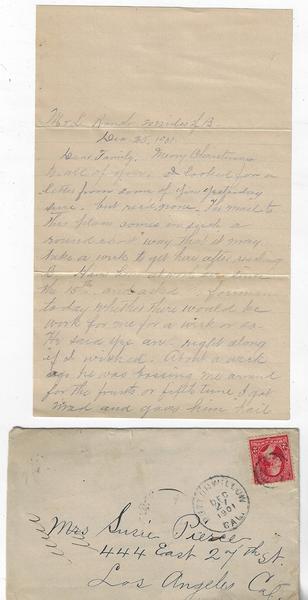 Mr L Rand residence L.B.
Dec 25, 1901
Dear Family. Merry Christmas
to all of you. I looked for a
letter from some of you yesterday
sure, but rec'd none. The mail to
this place comes in such a
round about way that it may
take a week to get here after reaching
the 15th and asked foreman
today whether there would be
work for me for a week or so.
He said yes right along
if I wished. About a week
ago he was bossing me around
for the fourth or fifth time I got
mad and gave him hail
BUTTONWILLOW
DEC
1901
CAL.
Mrs Susie Pierce
444 East 27th St.
Los Angeles Cal.